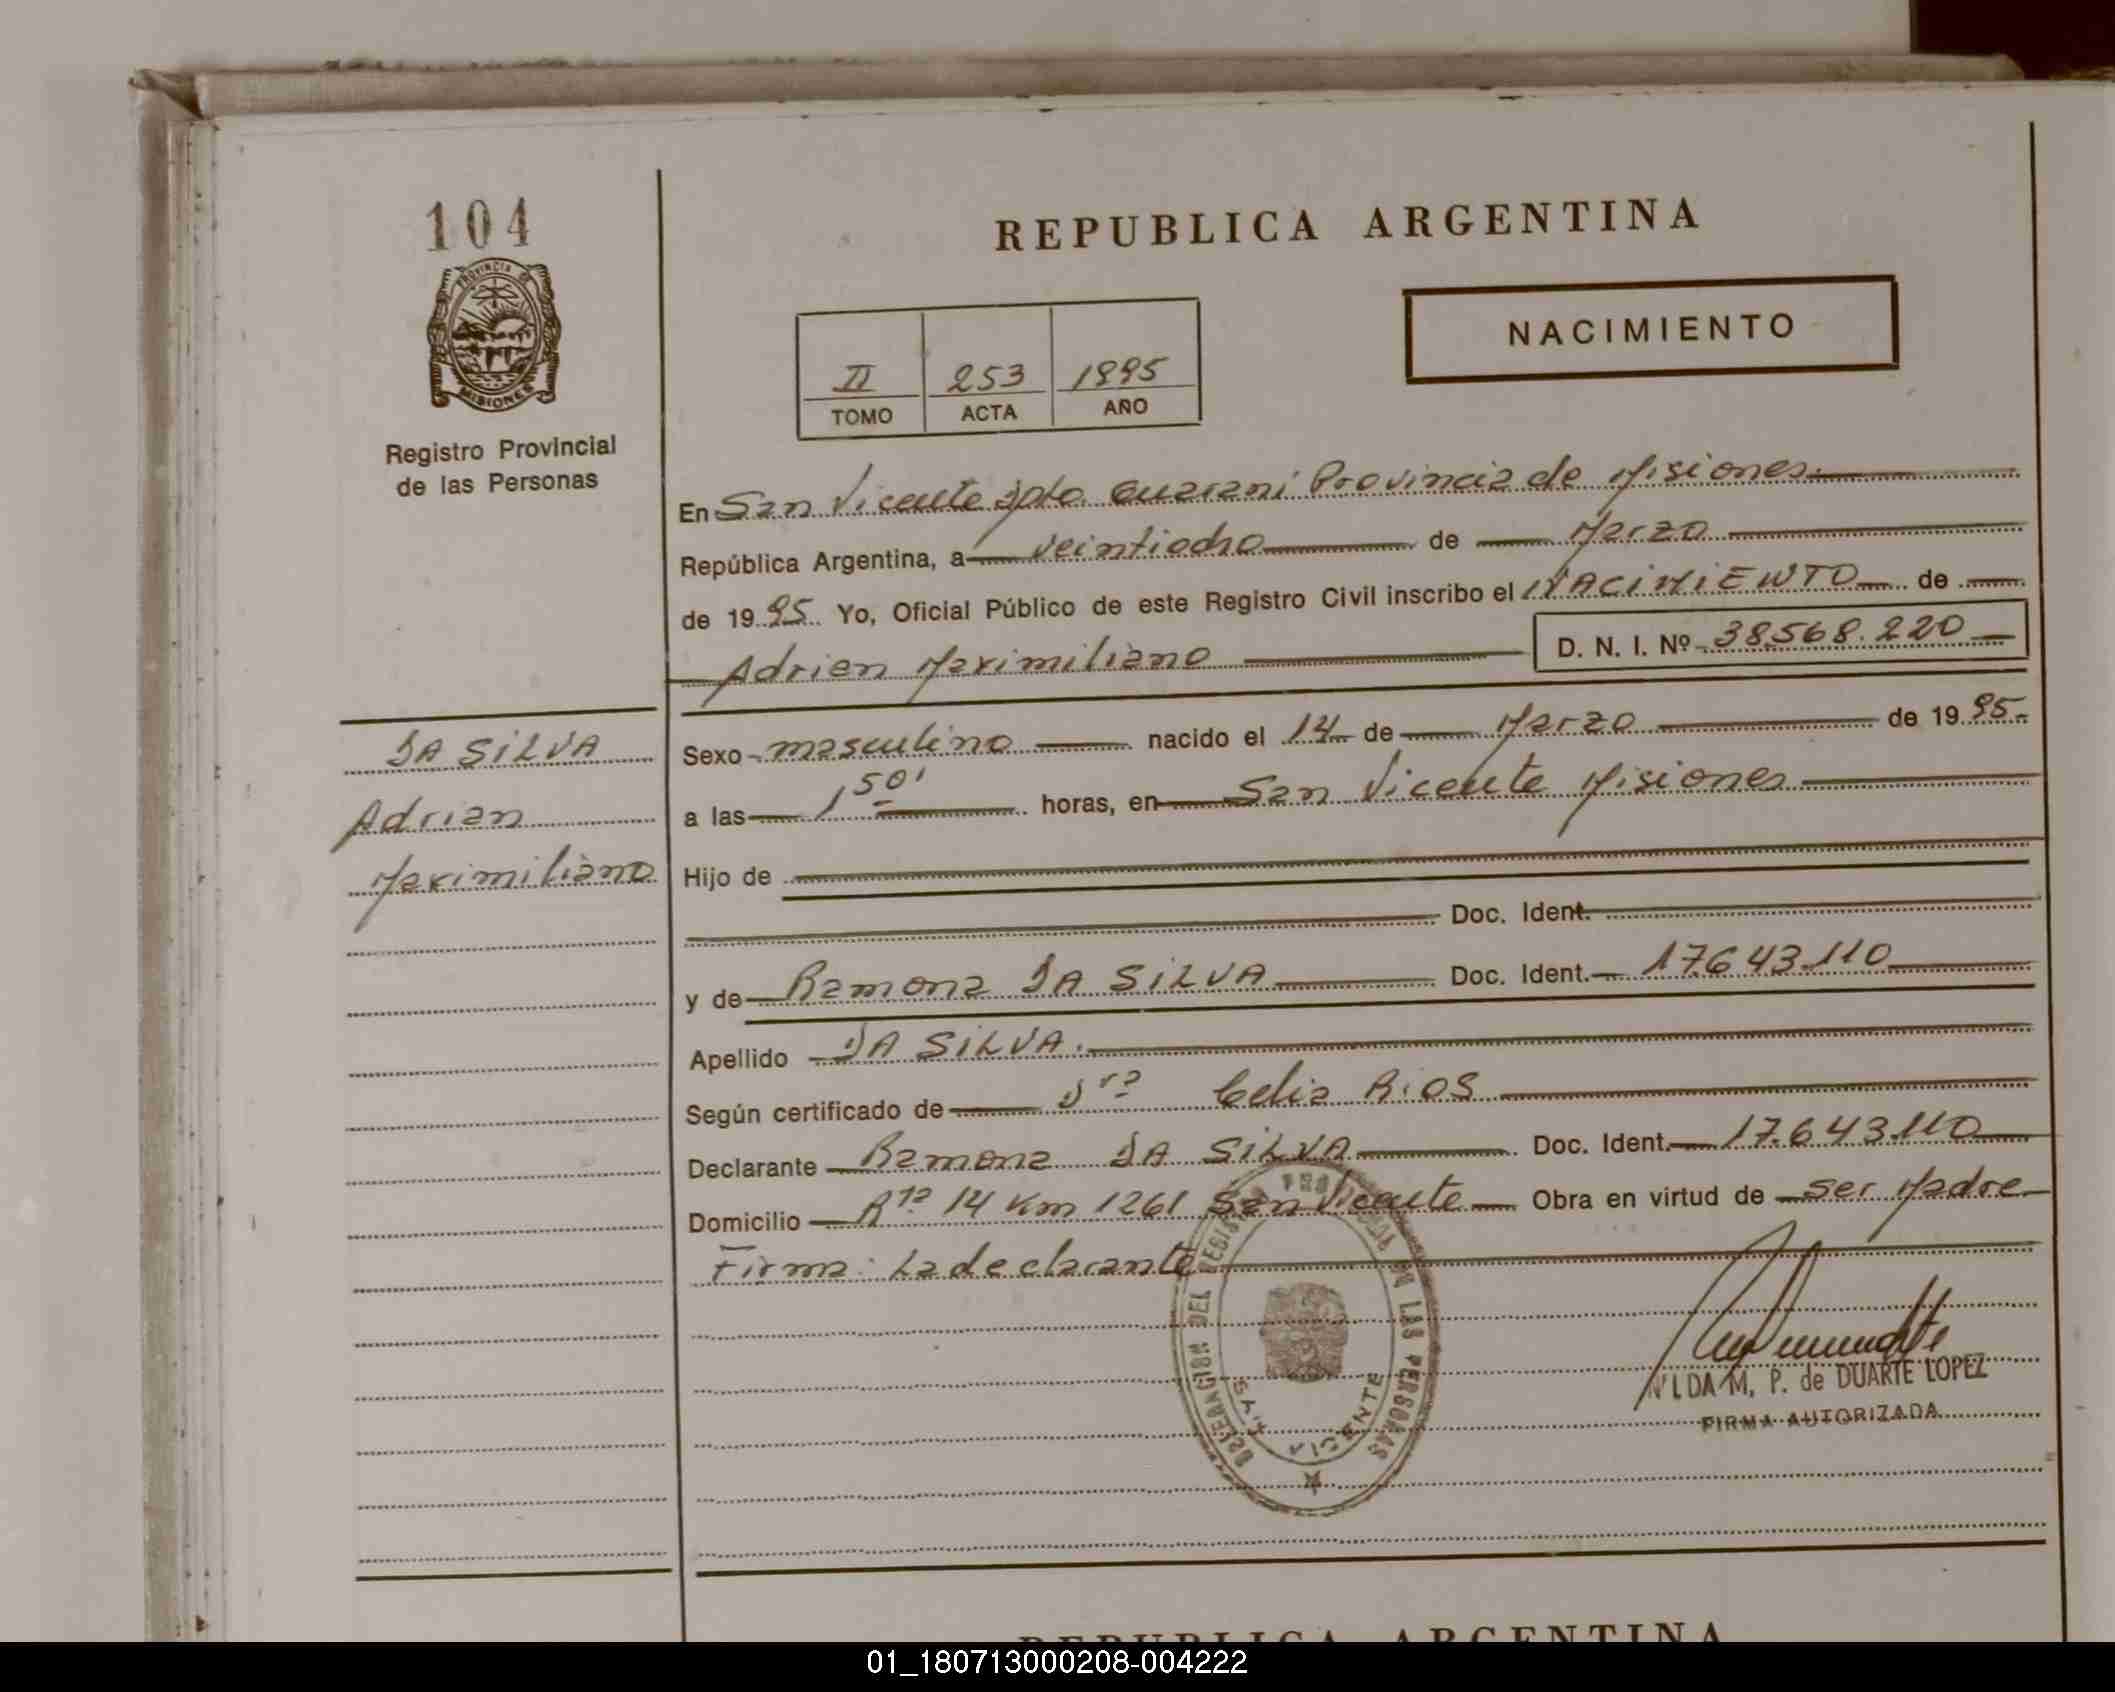 104
PROVINCIA DE
MISIONES
Registro Provincial
de las Personas
REPUBLICA ARGENTINA
NACIMIENTO
II 253 1995
TOMO ACTA AÑO
En San Vicente Dpto. Guarani Provincia de Misiones.
República Argentina, a veintiocho de Marzo
de 1995. Yo, Oficial Público de este Registro Civil inscribo el NACIMIENTO de
Adrian Maximiliano D. N. I. Nº 38.568.220
DA SILVA
Adrian
Maximiliano
Sexo masculino nacido el 14 de Marzo de 1995.
a las 1 50' horas, en San Vicente Misiones
Hijo de
Doc. Ident.
y de Ramona DA SILVA Doc. Ident. 17.643.110
Apellido DA SILVA.
Según certificado de Dra Celia RiOS
Declarante Ramona DA SILVA Doc. Ident. 17.643.110
Domicilio Rta 14 Km 1261 San Vicente Obra en virtud de ser Madre
Firma: La declarante
DELEGACION DEL REGISTRO PROVINCIAL DE LAS PERSONAS
SAN VICENTE
NILDA M. P. de DUARTE LOPEZ
FIRMA AUTORIZADA
REPUBLICA ARGENTINA
01_180713000208-004222